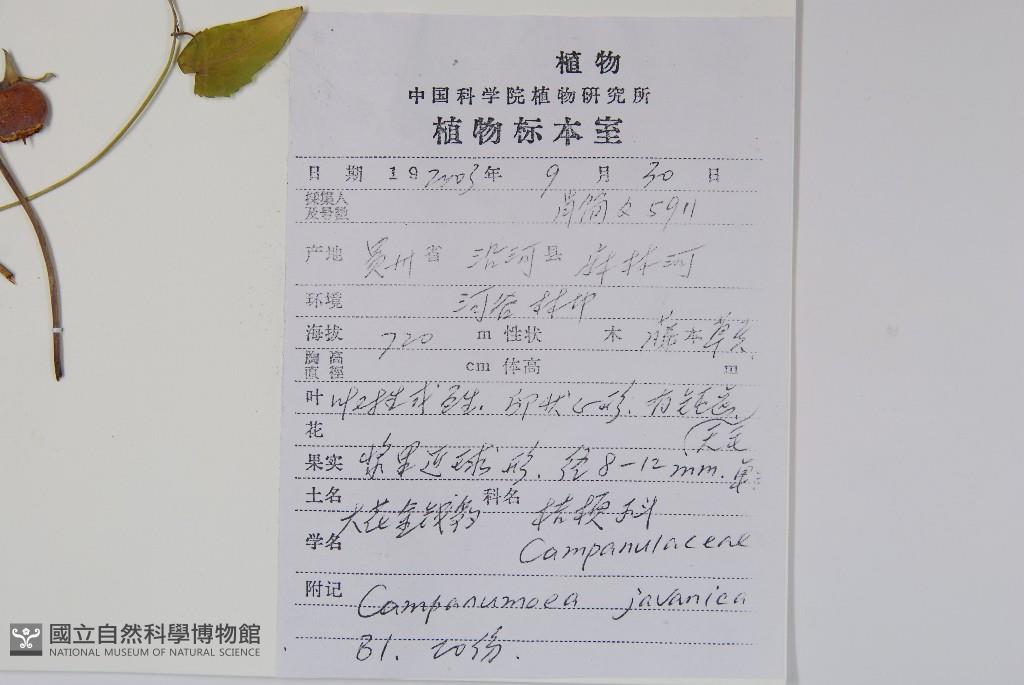 植物
中国科学院植物研究所
植物标本室
日 期 19 2003年 9 月 30 日
採集人
及号數 肖简文 5911
产地 贵州省 沿河县 麻林河
环境 河谷林中
海拔 720 m 性状 木 藤本 草质
胸高
直徑 cm 体高 m
叶 叶对生或互生. 卵状心形. 有钝齿.
花 无毛
果实 浆果近球形. 径8-12mm.
土名 大花金钱豹 科名 桔梗科
学名 Campanulaceae
附记 Campanumoea javanica
Bl. 20份.
國立自然科學博物館
NATIONAL MUSEUM OF NATURAL SCIENCE